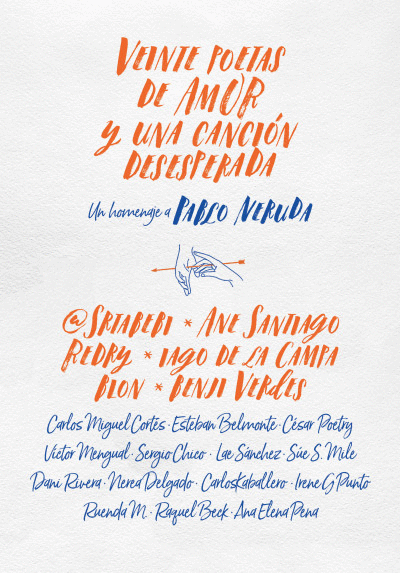 VEINTE POETAS
DE AMOR
Y UNA CANCIÓN
DESESPERADA
Un homenaje a PABLO NERUDA
@SRTABEBI * ANE SANTIAGO
REDRY * IAGO DE LA CAMPA
BLON * BENJI VERDES
Carlos Miguel Cortés · Esteban Belmonte · César Poetry
Víctor Mengual · Sergio Chico · Lae Sánchez · Súe S. Mile
Dani Rivera · Nerea Delgado · CarlosKaballero · Irene G Punto
Ruenda M · Raquel Beck · Ana Elena Pena